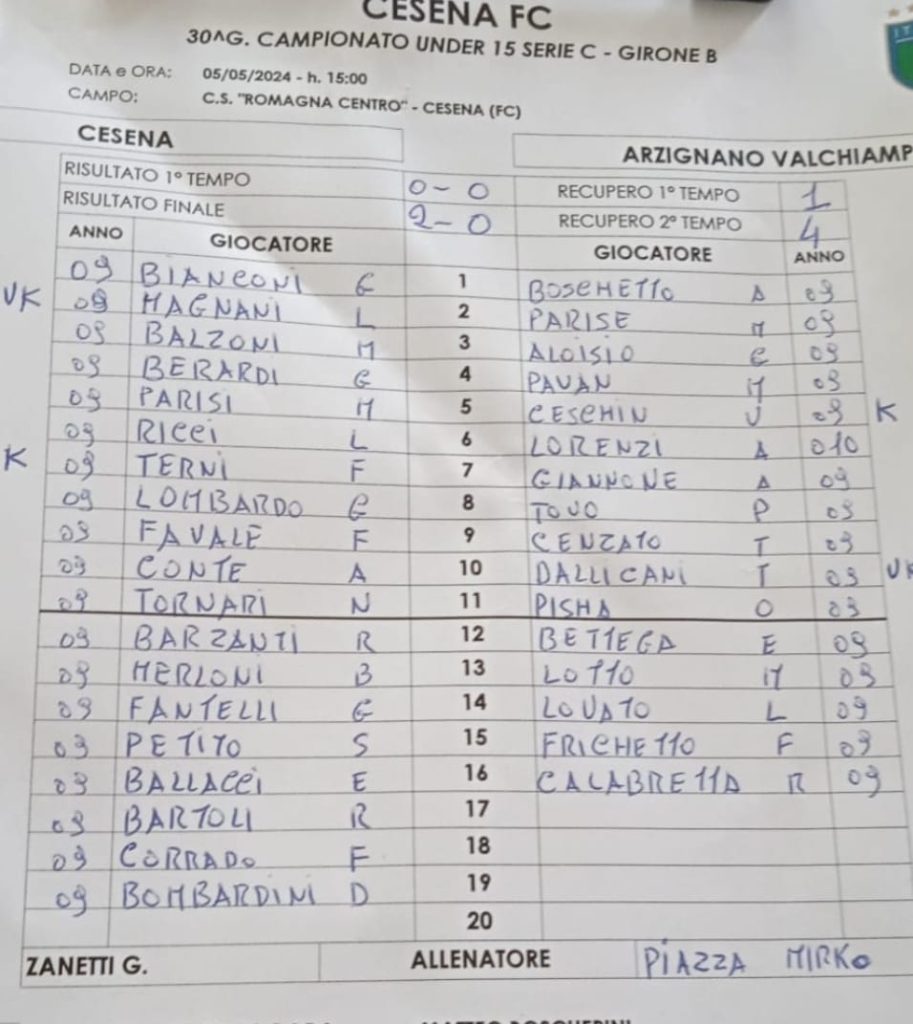 CESENA FC
30^G. CAMPIONATO UNDER 15 SERIE C - GIRONE B
DATA e ORA: 05/05/2024 - h. 15:00
CAMPO: C.S. "ROMAGNA CENTRO" - CESENA (FC)
CESENA ARZIGNANO VALCHIAMP
RISULTATO 1° TEMPO 0-0 RECUPERO 1° TEMPO 1
RISULTATO FINALE 2-0 RECUPERO 2° TEMPO 4
ANNO GIOCATORE GIOCATORE ANNO
09 BIANCONI G 1 BOSCHETTO A 09
VK 09 MAGNANI L 2 PARISE M 09
09 BALZONI M 3 ALOISIO C 09
09 BERARDI G 4 PAVAN M 09
09 PARISI M 5 CESCHIN J 09 K
09 RICCI L 6 LORENZI A 010
K 09 TERNI F 7 GIANNONE A 09
09 LOMBARDO G 8 TOVO P 09
09 FAVALE F 9 CENZATO T 09
09 CONTE A 10 DALLICANI T 09 VK
09 TORNARI N 11 PISHA O 09
09 BARZANTI R 12 BETTEGA E 09
09 MERLONI B 13 LOTTO M 09
09 FANTELLI G 14 LOVATO L 09
09 PETITO S 15 FRIGHETTO F 09
09 BALLACCI E 16 CALABRETTA R 09
09 BARTOLI R 17
09 CORRADO F 18
09 BOMBARDINI D 19
20
ZANETTI G. ALLENATORE PIAZZA MIRKO